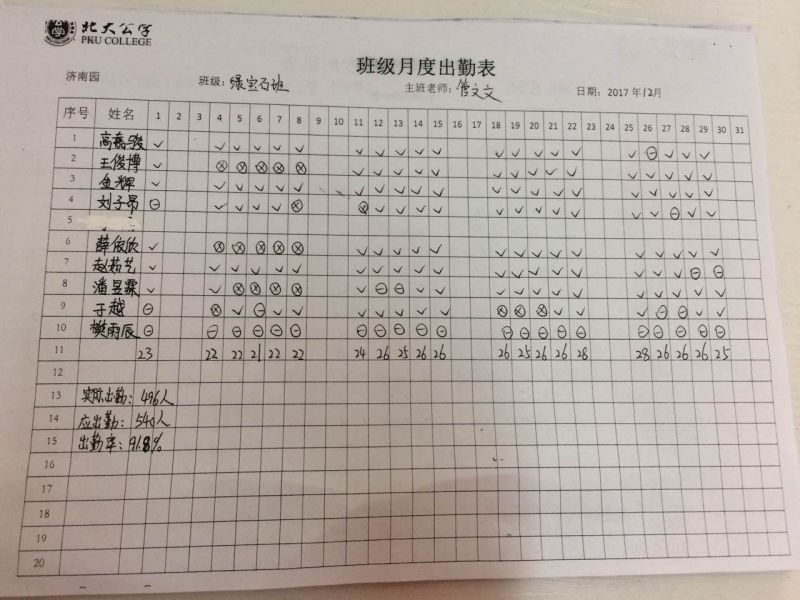 北大公学
PKU COLLEGE
班级月度出勤表
济南园 班级:绿宝石班 主班老师:管文文 日期:2017年12月
序号 姓名 1 2 3 4 5 6 7 8 9 10 11 12 13 14 15 16 17 18 19 20 21 22 23 24 25 26 27 28 29 30 31
1 高嘉骏 ✓ ✓ ✓ ✓ ✓ ✓ ✓ ✓ ✓ ✓ ✓ ✓ ✓ ✓ ✓ ✓ ✓ ⊖ ✓ ✓ ✓
2 王俊博 ✓ ⊗ ⊗ ⊗ ⊗ ⊗ ✓ ✓ ✓ ✓ ✓ ✓ ✓ ✓ ✓ ✓ ✓ ✓ ✓ ✓ ✓
3 金辉 ✓ ✓ ✓ ✓ ✓ ✓ ✓ ✓ ✓ ✓ ✓ ✓ ✓ ✓ ✓ ✓ ✓ ✓ ✓ ✓ ✓
4 刘子昂 ⊖ ✓ ✓ ✓ ✓ ⊗ ⊗ ✓ ✓ ✓ ✓ ✓ ✓ ✓ ✓ ✓ ✓ ✓ ⊖ ✓ ✓
5
6 薛依欣 ✓ ⊗ ⊗ ⊗ ⊗ ⊗ ✓ ✓ ✓ ✓ ✓ ✓ ✓ ✓ ✓ ✓ ✓ ✓ ✓ ✓ ✓
7 赵茹艺 ✓ ✓ ✓ ✓ ✓ ✓ ✓ ✓ ✓ ✓ ✓ ✓ ✓ ✓ ✓ ✓ ✓ ✓ ✓ ⊖ ⊖
8 潘昱霖 ✓ ✓ ⊗ ⊗ ⊗ ⊗ ✓ ⊖ ⊖ ✓ ✓ ✓ ✓ ✓ ✓ ✓ ✓ ✓ ✓ ✓ ✓
9 于越 ⊖ ⊗ ✓ ⊖ ✓ ✓ ✓ ✓ ✓ ✓ ✓ ⊗ ⊗ ⊗ ✓ ✓ ✓ ⊖ ⊖ ✓ ✓
10 樊雨辰 ⊖ ⊖ ⊖ ⊖ ⊖ ⊖ ⊖ ⊖ ⊖ ⊖ ⊖ ⊖ ⊖ ⊖ ⊖ ⊖ ⊖ ⊖ ⊖ ⊖ ⊖
11 23 22 22 21 22 22 24 26 25 26 26 26 25 26 26 28 28 26 26 26 25
12
13 实际出勤:496人
14 应出勤:540人
15 出勤率:91.8%
16
17
18
19
20